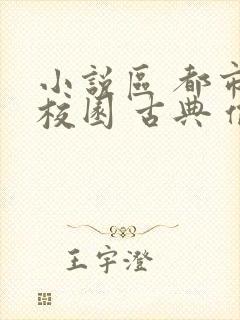 小說區 都市
校園 古典
王宇澄